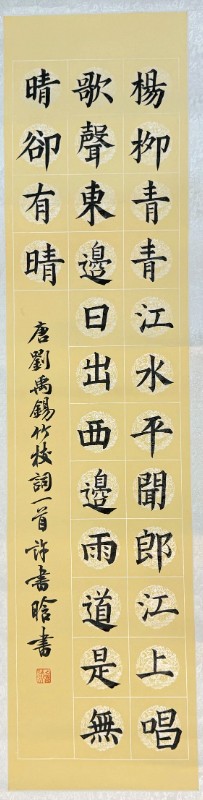 楊柳青青江水平聞郎江上唱
歌聲東邊日出西邊雨道是無
晴卻有晴
唐劉禹錫竹枝詞一首許書晗書